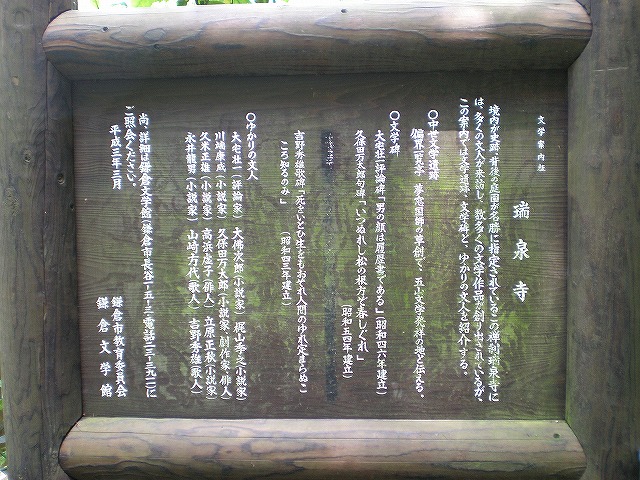 文学案内板
瑞泉寺
境内が史跡、背後の庭園が名勝に指定されているこの禅刹瑞泉寺に
は、多くの文人が来訪し、数多くの文学作品が創り出されているが、
この案内では文学遺跡、文学碑と、ゆかりの文人を紹介する。
〇中世文学遺跡
偏界一覧亭 夢窓国師の草創で、五山文学発祥の地と伝える。
〇文学碑
大宅壮一評論碑「男の顔は履歴書である」(昭和四六年建立)
久保田万太郎句碑「いつぬれし松の根方ぞ春しぐれ」
(昭和五四年建立)
吉野秀雄歌碑「死をいとひ生をもおそれ人間のゆれ定まらぬこ
ころ知るのみ」
(昭和四三年建立)
〇ゆかりの文人
大宅壮一(評論家) 大佛次郎(小説家) 梶山季之(小説家)
川端康成(小説家) 久保田万太郎(小説家、劇作家、俳人)
久米正雄(小説家) 高浜虚子(俳人) 立原正秋(小説家)
永井龍男(小説家) 山崎方代(歌人) 吉野秀雄(歌人)
尚、詳細は鎌倉文学館(鎌倉市長谷一-五-三 電話二三-三九一一)に
ご照会ください。
平成三年三月
鎌倉市教育委員会
鎌倉文学館